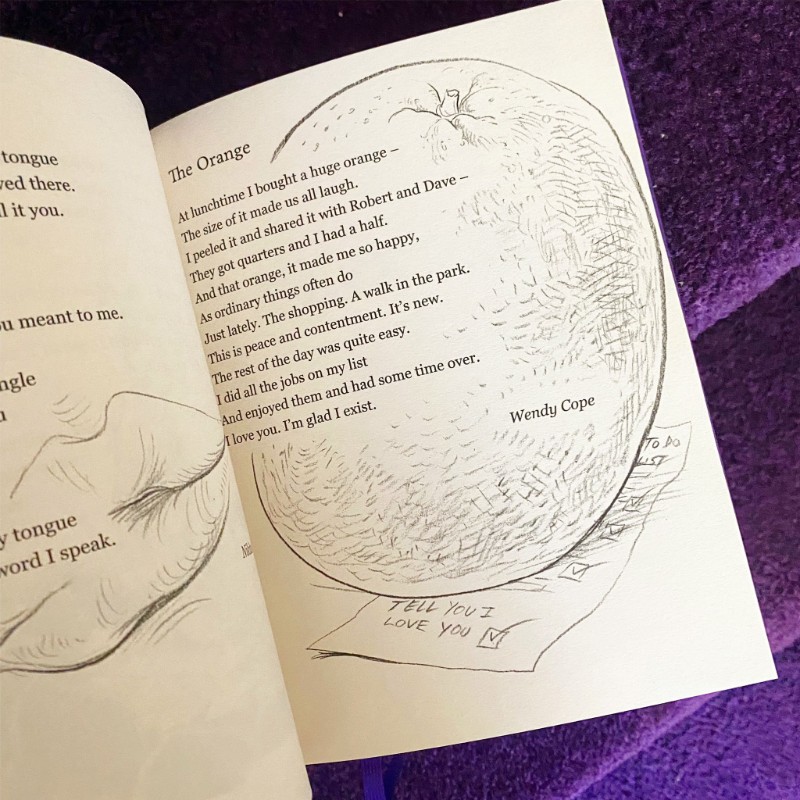 tongue
there.
it you.
meant to me.
tongue
word I speak.
The Orange
At lunchtime I bought a huge orange –
The size of it made us all laugh.
I peeled it and shared it with Robert and Dave –
They got quarters and I had a half.
And that orange, it made me so happy,
As ordinary things often do
Just lately. The shopping. A walk in the park.
This is peace and contentment. It's new.
The rest of the day was quite easy.
I did all the jobs on my list
And enjoyed them and had some time over.
I love you. I'm glad I exist.
Wendy Cope
TO DO
LIST
TELL YOU I
LOVE YOU